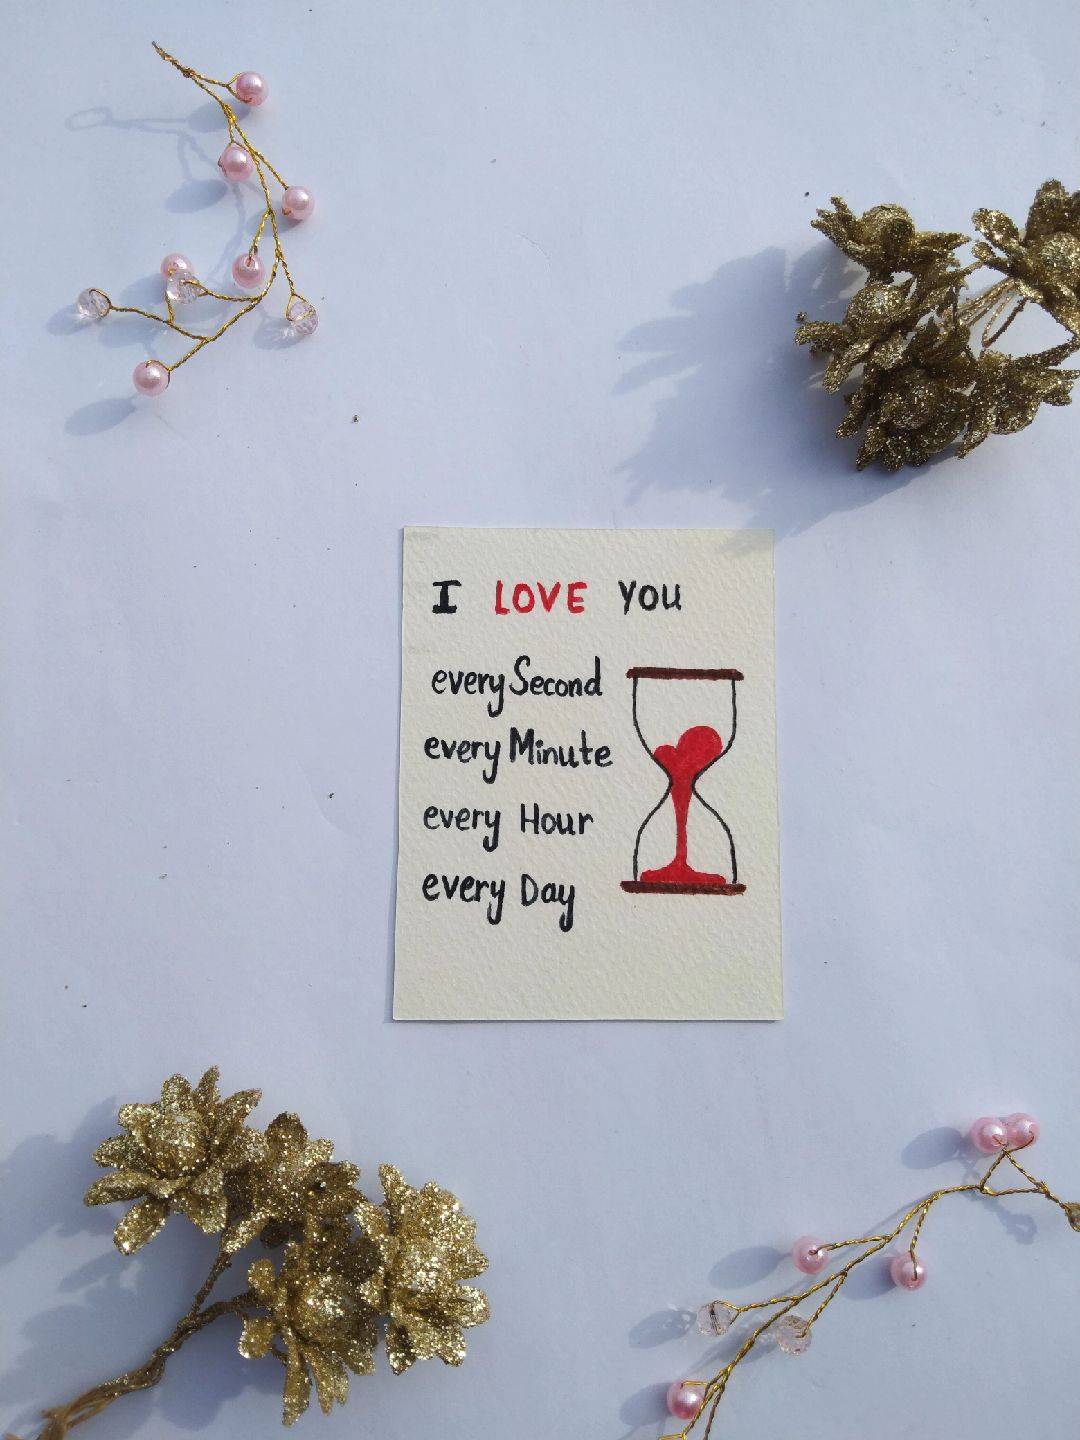 I LOVE YOU
every Second
every Minute
every Hour
every Day